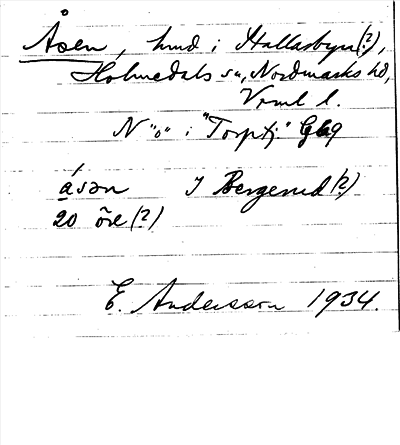 Åsen, hmd i Hallarbyn(?),
Holmedals sn, Nordmarks hd,
Vrml l.
N "o" i "Torptj" G69
åsən I Bergerud(?)
20 öre(?)
E. Andersson 1934.